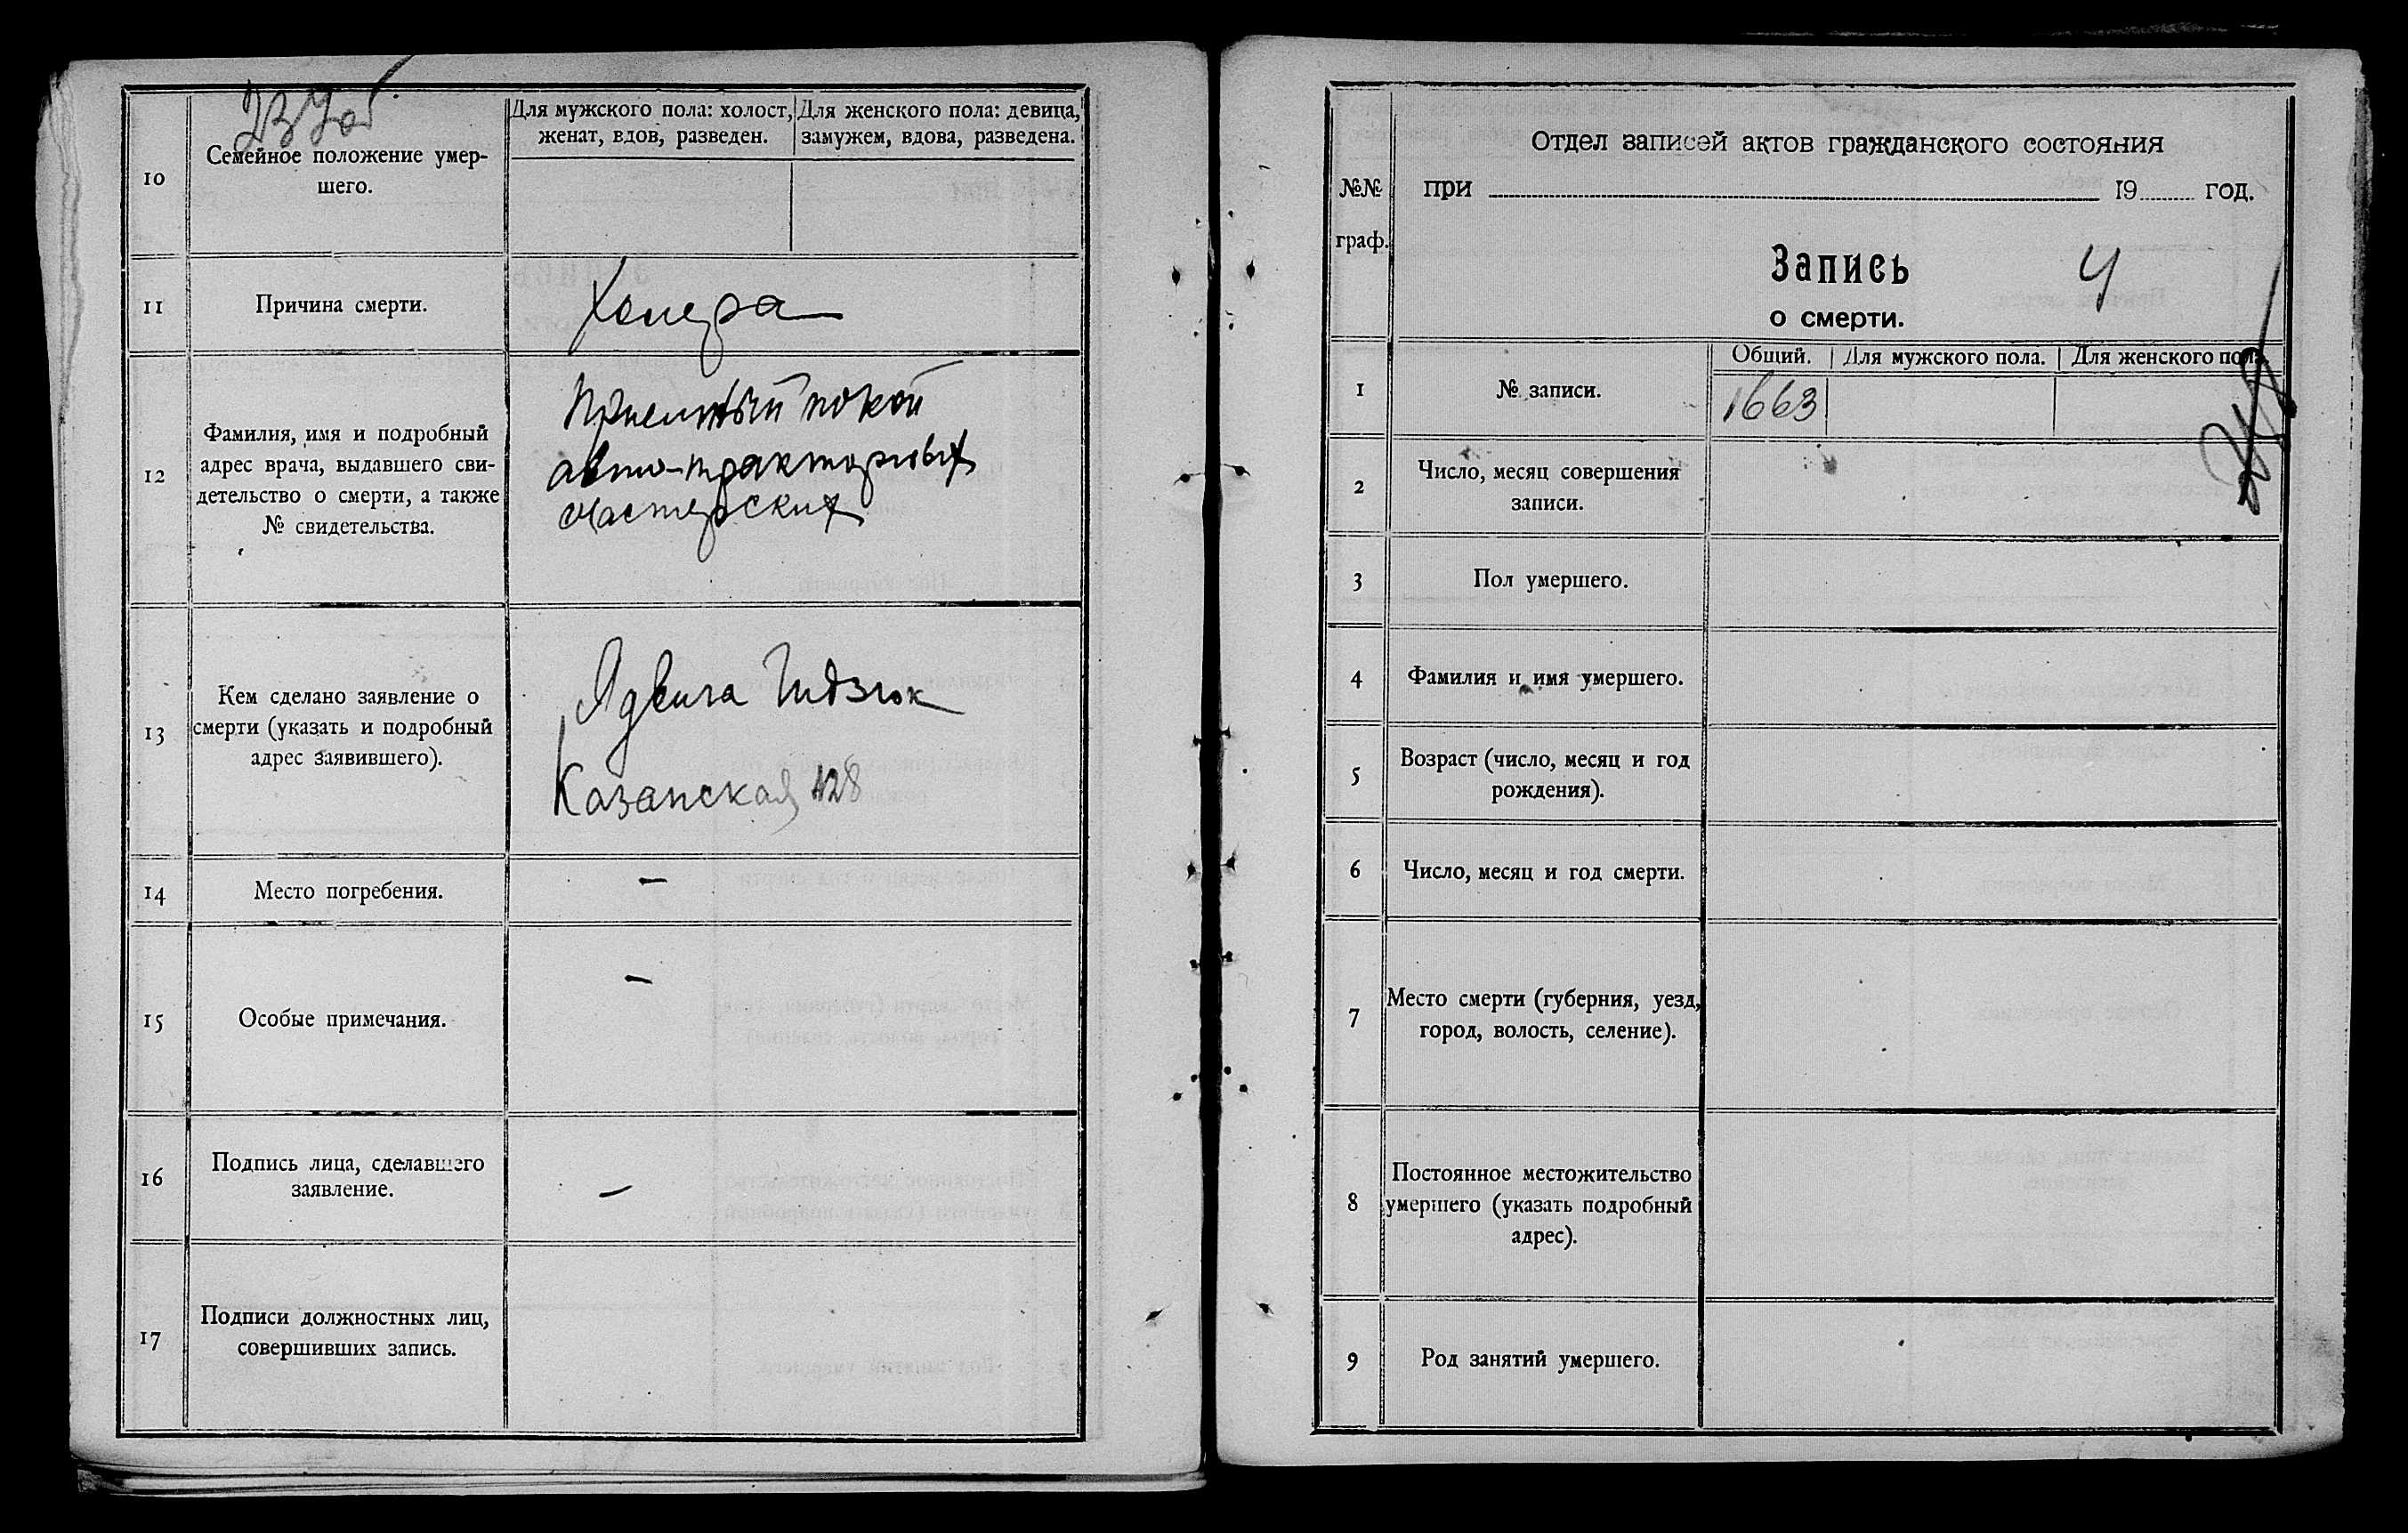 10
Семейное положение умер-
шего.
Для мужского пола: холост,
женат, вдов, разведен.
Для женского пола: девица,
замужем, вдова, разведена.
11
Причина смерти.
Холера
12
Фамилия, имя и подробный
адрес врача, выдавшего сви-
детельство о смерти, а также
№ свидетельства.
Приемный покой
авто-тракторных
мастерских
13
Кем сделано заявление о
смерти (указать и подробный
адрес заявившего).
Ядвига Гидзюк
Казанская 128
14
Место погребения.
—
15
Особые примечания.
—
16
Подпись лица, сделавшего
заявление.
—
17
Подписи должностных лиц,
совершивших запись.
№№
граф.
Отдел записей актов гражданского состояния
при 19 год.
Запись
о смерти.
1
№ записи.
Общий. Для мужского пола. Для женского пола.
1663
2
Число, месяц совершения
записи.
3
Пол умершего.
4
Фамилия и имя умершего.
5
Возраст (число, месяц и год
рождения).
6
Число, месяц и год смерти.
7
Место смерти (губерния, уезд,
город, волость, селение).
8
Постоянное местожительство
умершего (указать подробный
адрес).
9
Род занятий умершего.